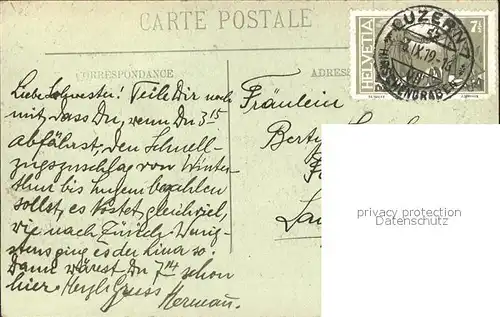 CARTE POSTALE
CORRESPONDANCE
ADRES
HELVETIA
7½
LUZERN 1
IX.19
HIRSCHENGRABEN
Liebe Schwester! Teile Dir noch
mit, dass Du, wenn Du 3 15
abfährst, den Schnell-
zugszuschlag von Winter-
thur bis Luzern bezahlen
sollst, es kostet gleichviel,
wie nach Zürich. Wenig-
stens ging es der Lina so.
Dann wärest Du 7 14 schon
hier. Herzl. Gruss
Hermann.
Fräulein
privacy protection
Datenschutz